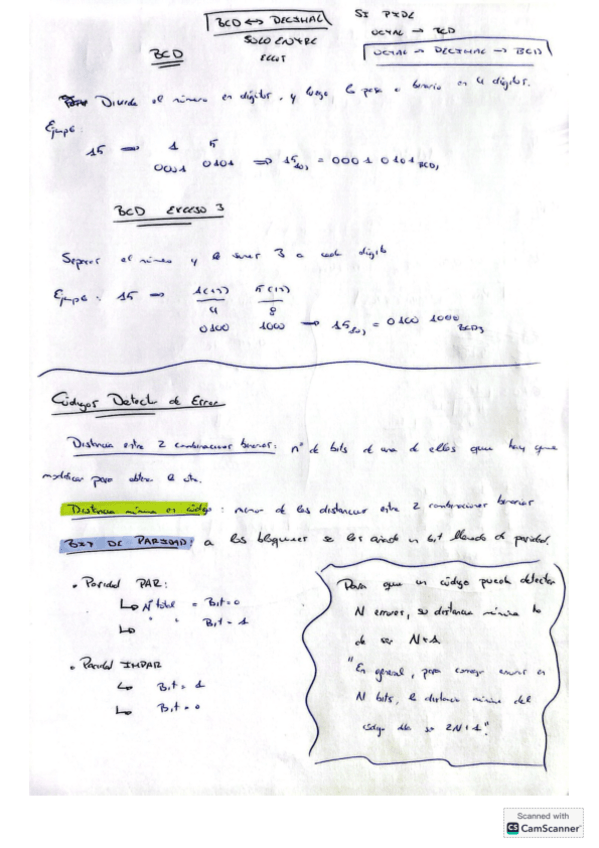 BCD ↔ DECIMAL
SOLO ENTRE
ELLOS
SI PIDE
OCTAL → BCD
OCTAL → DECIMAL → BCD
BCD
Divide el número en dígitos, y luego, lo pasa a binario en 4 dígitos.
Ejemplo:
15 ⇒ 1 5
0001 0101 ⇒ 15 = 0001 0101 BCD
BCD EXCESO 3
Separas el número y le sumas 3 a cada dígito
Ejemplo: 15 ⇒ 1(+3) 5(+3)
4 8
0100 1000 ⇒ 15 = 0100 1000 BCD3
Códigos Detector de Error
Distancia entre 2 combinaciones binarias: nº de bits de una de ellas que hay que
modificar para obtener la otra.
Distancia mínima en código: menor de las distancias entre 2 combinaciones binarias
BIT DE PARIDAD: a los bloques se les añade un bit llamado de paridad.
• Paridad PAR:
↳ Nº total = Bit=0
↳ " " Bit=1
• Paridad IMPAR
↳ Bit=1
↳ Bit=0
Para que un código pueda detectar
N errores, su distancia mínima ha
de ser N+1
"En general, para corregir errores en
N bits, la distancia mínima del
código debe ser 2N+1."
Scanned with
CS CamScanner